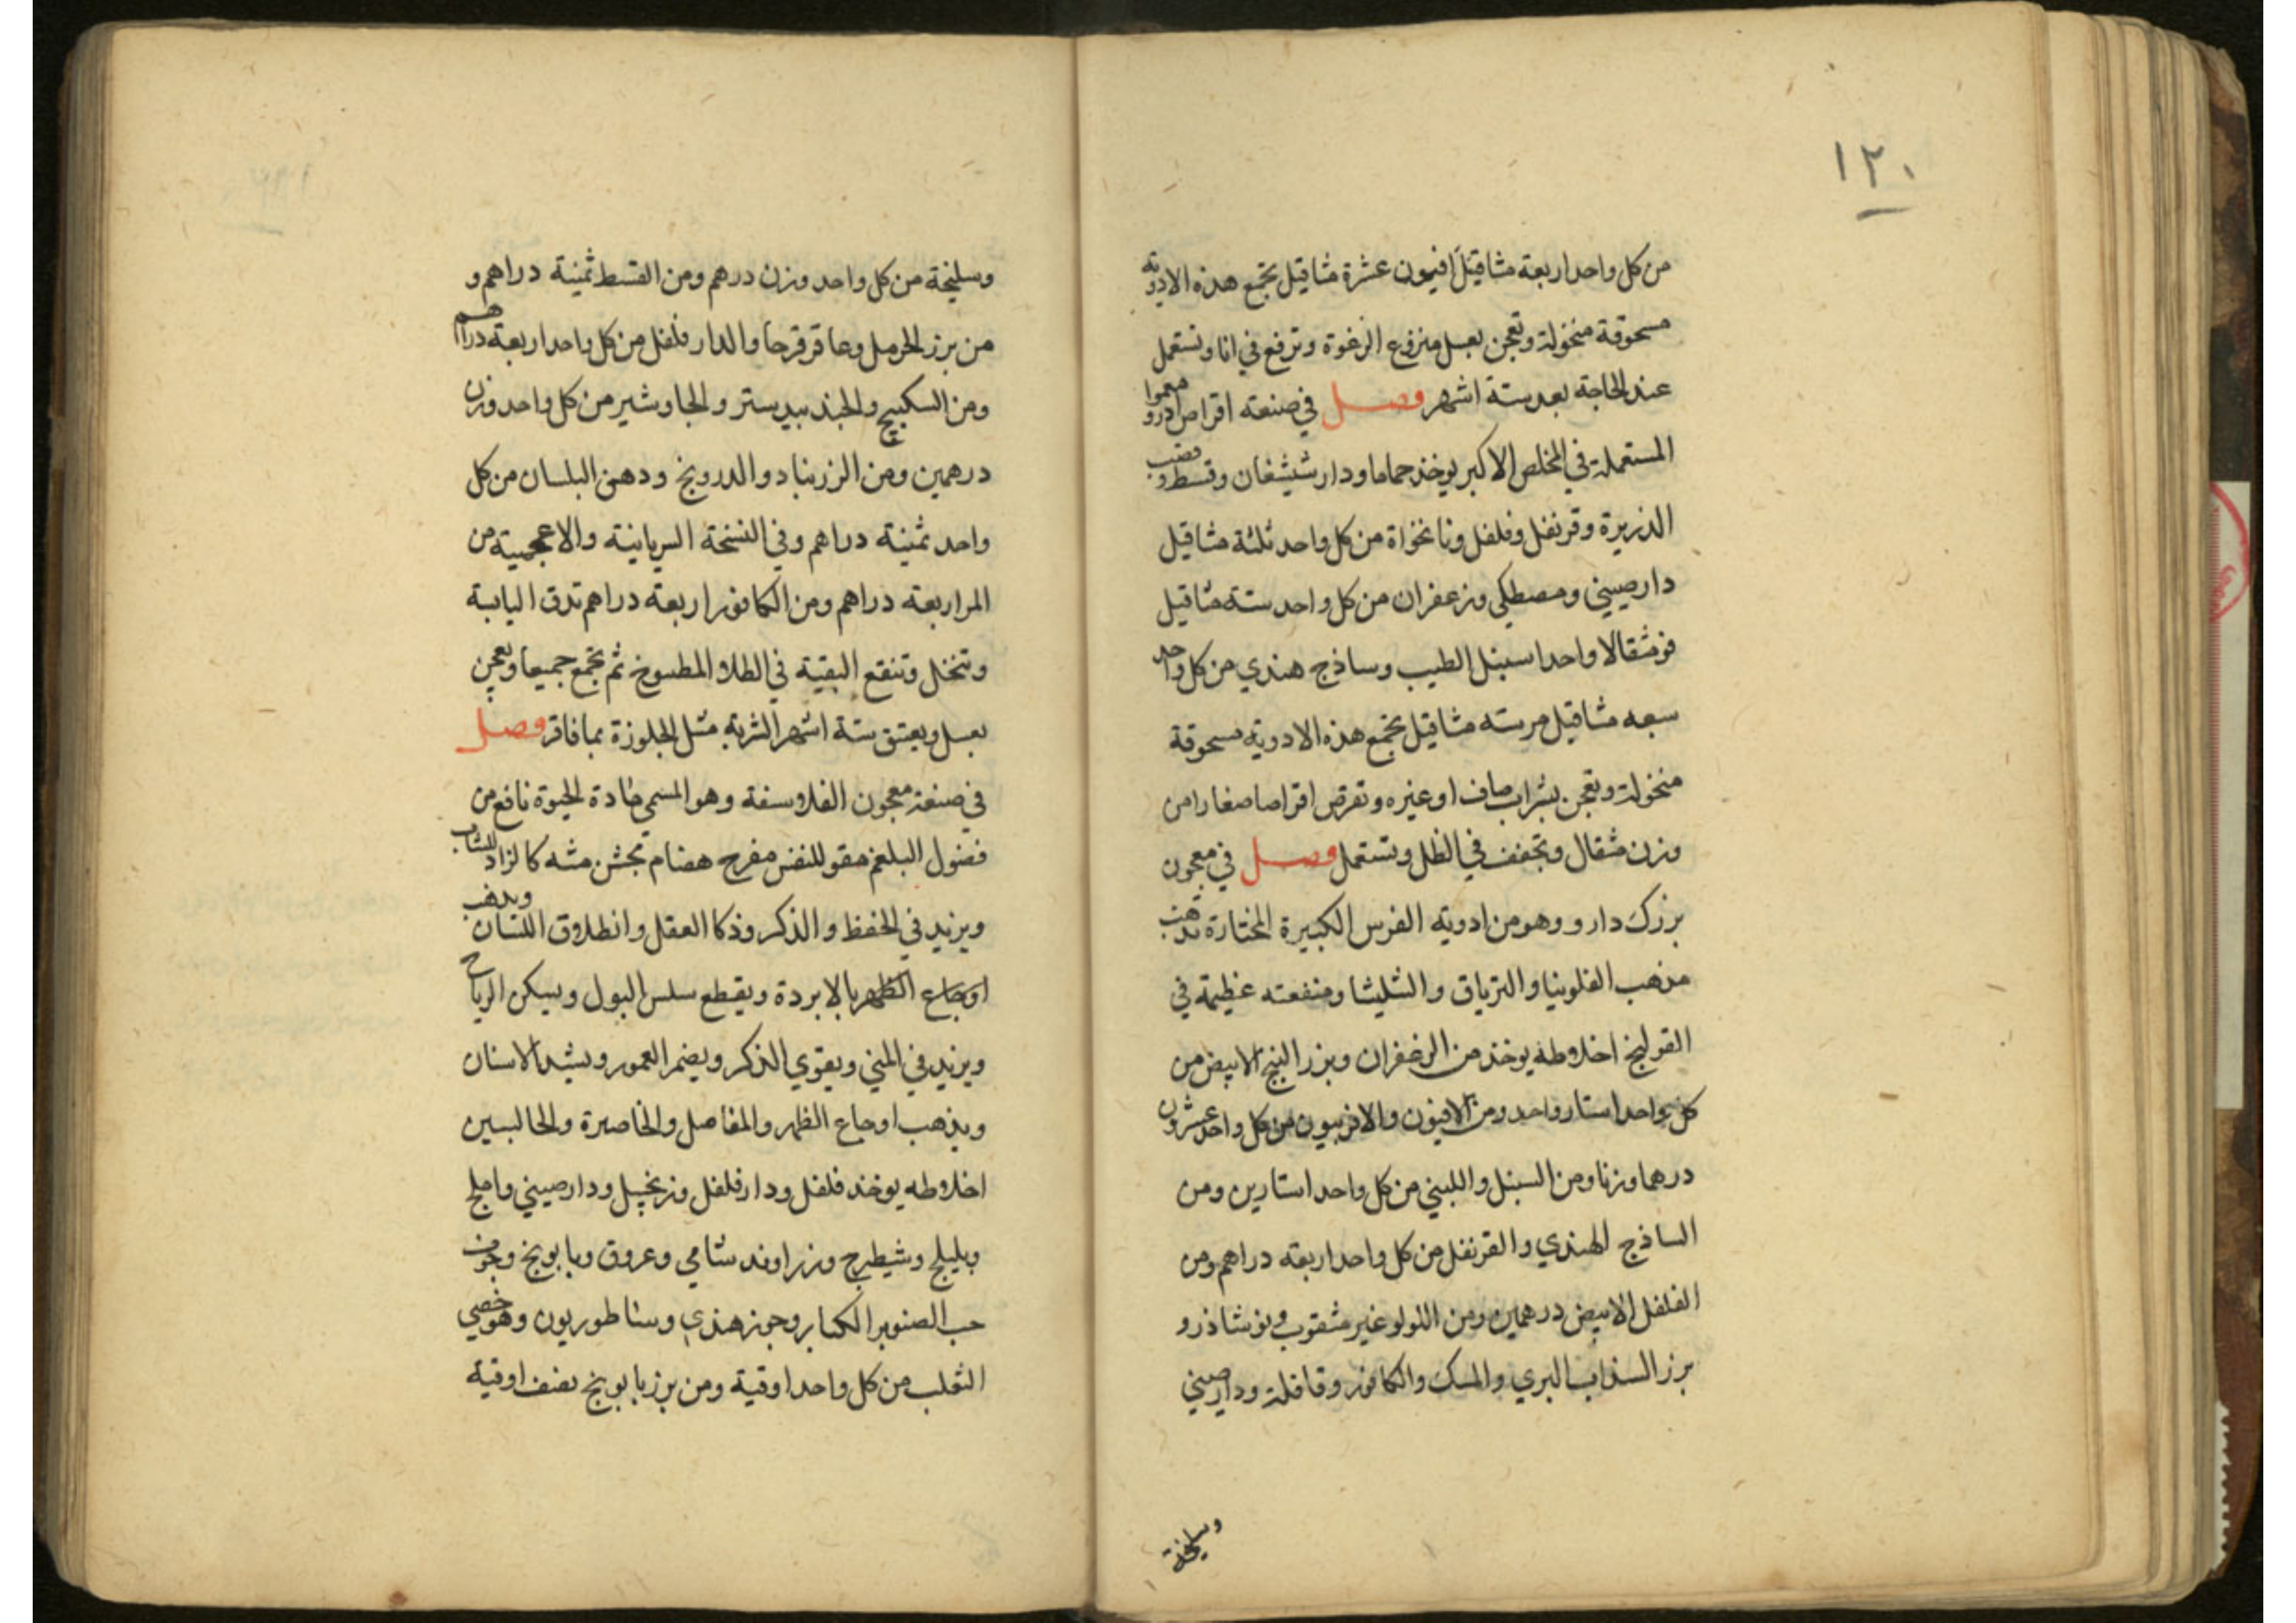 ١٢٠
من كل واحد اربعة مثاقيل افيمون عشرة مثاقيل تجمع هذه الادوية
مسحوقة منخولة وتعجن بعسل منزوع الرغوة وترفع في انا وتستعمل
عند الحاجة بعد ستة اشهر فصل في صنعته اقراص ادرو معموا
المستعملة في المخلص الاكبر يوخذ حماما ودار شيشغان وقسط وقصب
الذريرة وقرنفل وفلفل ونانخواة من كل واحد ثلثة مثاقيل
دارصيني ومصطكي وزعفران من كل واحد ستة مثاقيل
فو مثقالا واحدا سنبل الطيب وساذج هندي من كل واحد
سبعه مثاقيل مر سته مثاقيل تجمع هذه الادوية مسحوقة
منخولة وتعجن بشراب صاف او غيره وتقرص اقراصا صغارا من
وزن مثقال وتجفف في الظل وتستعمل فصل في معجون
بزرك دارو وهو من ادويه الفرس الكبيرة المختارة تذهب
مذهب الفلونيا والترياق والشليثا ومنفعته عظيمة في
القولنج اخلاطه يوخذ من الزعفران وبزر البنج الابيض من
كل واحد استار واحد ومن الافيون والافربيون من كل واحد عشرون
درهما وزنا ومن السنبل واللبني من كل واحد استارين ومن
الساذج الهندي والقرنفل من كل واحد اربعه دراهم ومن
الفلفل الابيض درهمين ومن اللولو غير مثقوب ونوشاذر و
برز السذاب البري والمسك والكافور وقاقلة ودارصيني
وسليخة
وسليخة من كل واحد وزن درهم ومن القسط ثمنية دراهم و
من برز الحرمل وعاقرقرحا والدار فلفل من كل واحد اربعة دراهم
ومن السكبينج والجندبيدستر والجاوشير من كل واحد وزن
درهمين ومن الزرنباد والدرونج ودهن البلسان من كل
واحد ثمنية دراهم وفي النسخة السريانية والاعجمية من
المر اربعة دراهم ومن الكافور اربعة دراهم تدق اليابسة
وتنخل وتنقع البقية في الطلا المطبوخ ثم تجمع جميعا وتعجن
بعسل ويعتق ستة اشهر الشربة مثل الجلوزة بما فاتر فصل
في صنعة معجون الفلاسفة وهو المسمى مادة الحيوة نافع من
فضول البلغم مقو للنفس مفرح هضام تجشن مشه كالزاد للشاب
ويزيد في الحفظ والذكر وذكا العقل وانطلاق اللسان ويذهب
اوجاع الظهر بالابردة ويقطع سلس البول ويسكن الرياح
ويزيد في المني ويقوي الذكر ويضمر العمور ويشد الاسنان
ويذهب اوجاع الظهر والمفاصل والخاصرة والحالبين
اخلاطه يوخذ فلفل ودارفلفل وزنجبيل ودارصيني واملج
وبليلج وشيطرج وزراوند شامي وعروق وبابونج وجوف
حب الصنوبر الكبار وجوز هندي وساطوريون وهو خصي
الثعلب من كل واحد اوقية ومن برز بابونج نصف اوقية